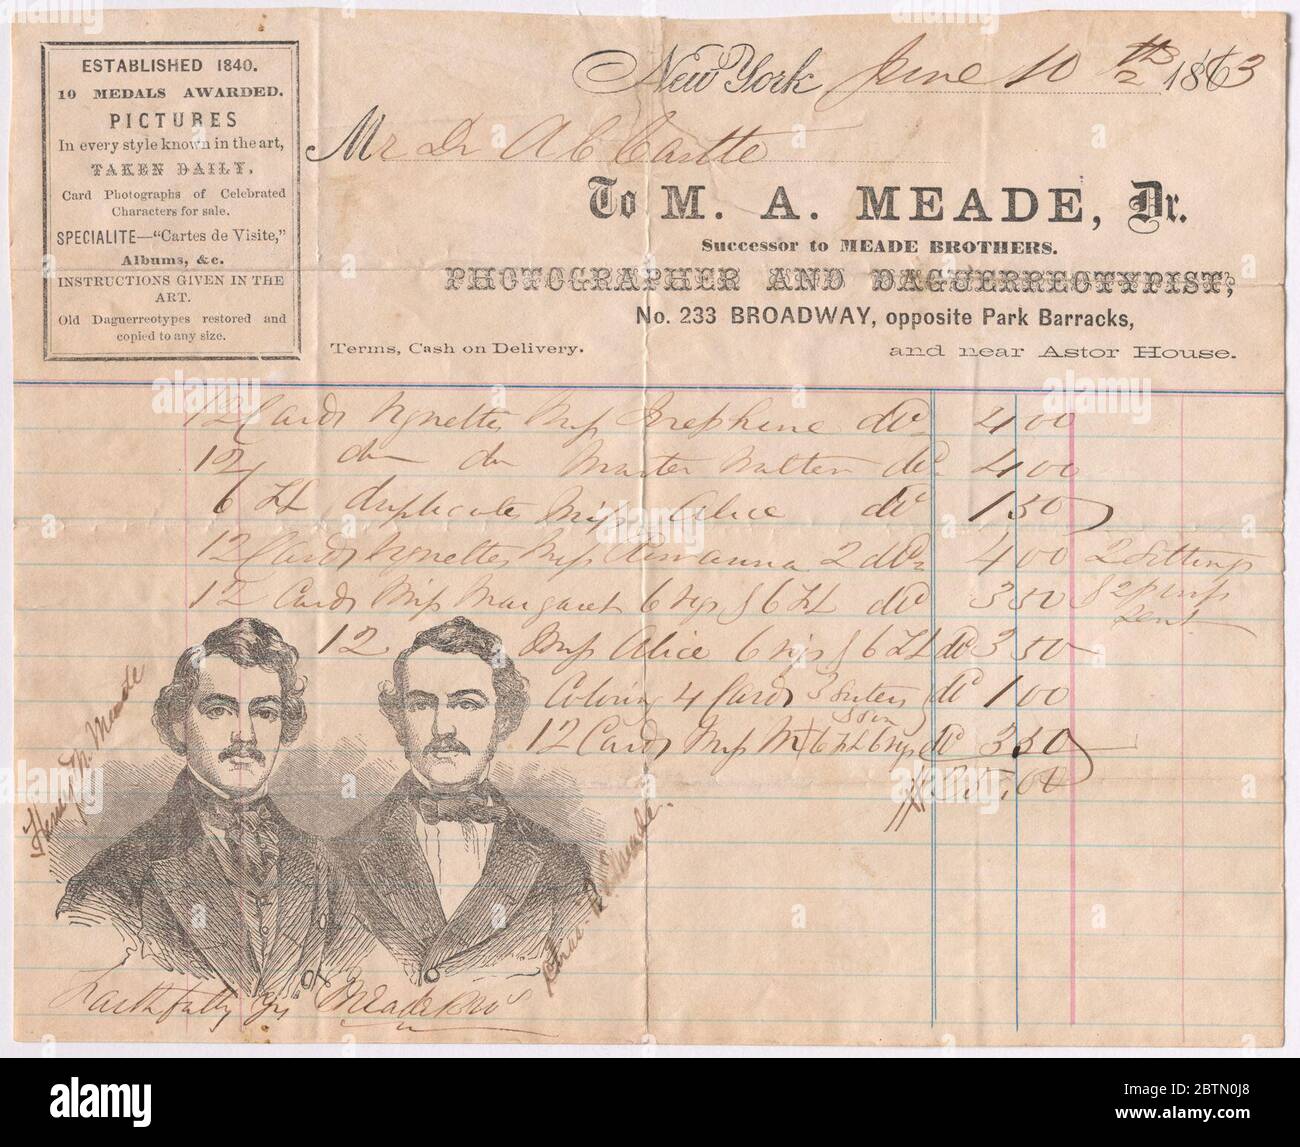 ESTABLISHED 1840.
10 MEDALS AWARDED.
PICTURES
In every style known in the art,
TAKEN DAILY.
Card Photographs of Celebrated
Characters for sale.
SPECIALITE—"Cartes de Visite,"
Albums, &c.
INSTRUCTIONS GIVEN IN THE
ART.
Old Daguerreotypes restored and
copied to any size.
New York June 10th 1863
Mr Dr A C Castle
To M. A. MEADE, Dr.
Successor to MEADE BROTHERS.
PHOTOGRAPHER AND DAGUERREOTYPIST,
No. 233 BROADWAY, opposite Park Barracks,
Terms, Cash on Delivery. and near Astor House.
12 Cards Vignettes Miss Josephine 4 00
12 do do Master Walter 4 00
6 duplicate Miss Alice 1 50
12 Cards Vignettes Miss 2 4 00 2 Sittings
12 Cards Miss Margaret 6 & 6 3 50 & 2
12 Miss Alice 6 & 6 3 50 sent
Coloring 4 Cards 3 Sisters 1 00
12 Cards Miss M 6 6 3 50
$25.00
Henry W. Meade
Chas. R. Meade.
Faithfully Yrs Meade Bros
alamy
Image ID: 2BTN0J8
www.alamy.com